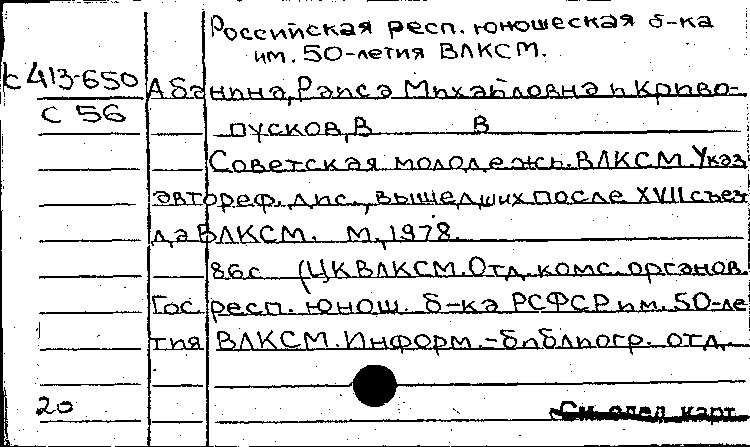 Российская респ. юношеская б-ка
им. 50-летия ВЛКСМ.
С 413-650
С 56
Абанина, Раиса Михайловна и Криво-
пусков, В В
Советская молодежь. ВЛКСМ. Указ
автореф. дис., вышедших после XVII съез
да ВЛКСМ. М., 1978.
86 с (ЦК ВЛКСМ. Отд. комс. органов.
Гос респ. юнош. б-ка РСФСР им. 50-ле
тия ВЛКСМ. Информ.-библиогр. отд.
20
См. след. карт.